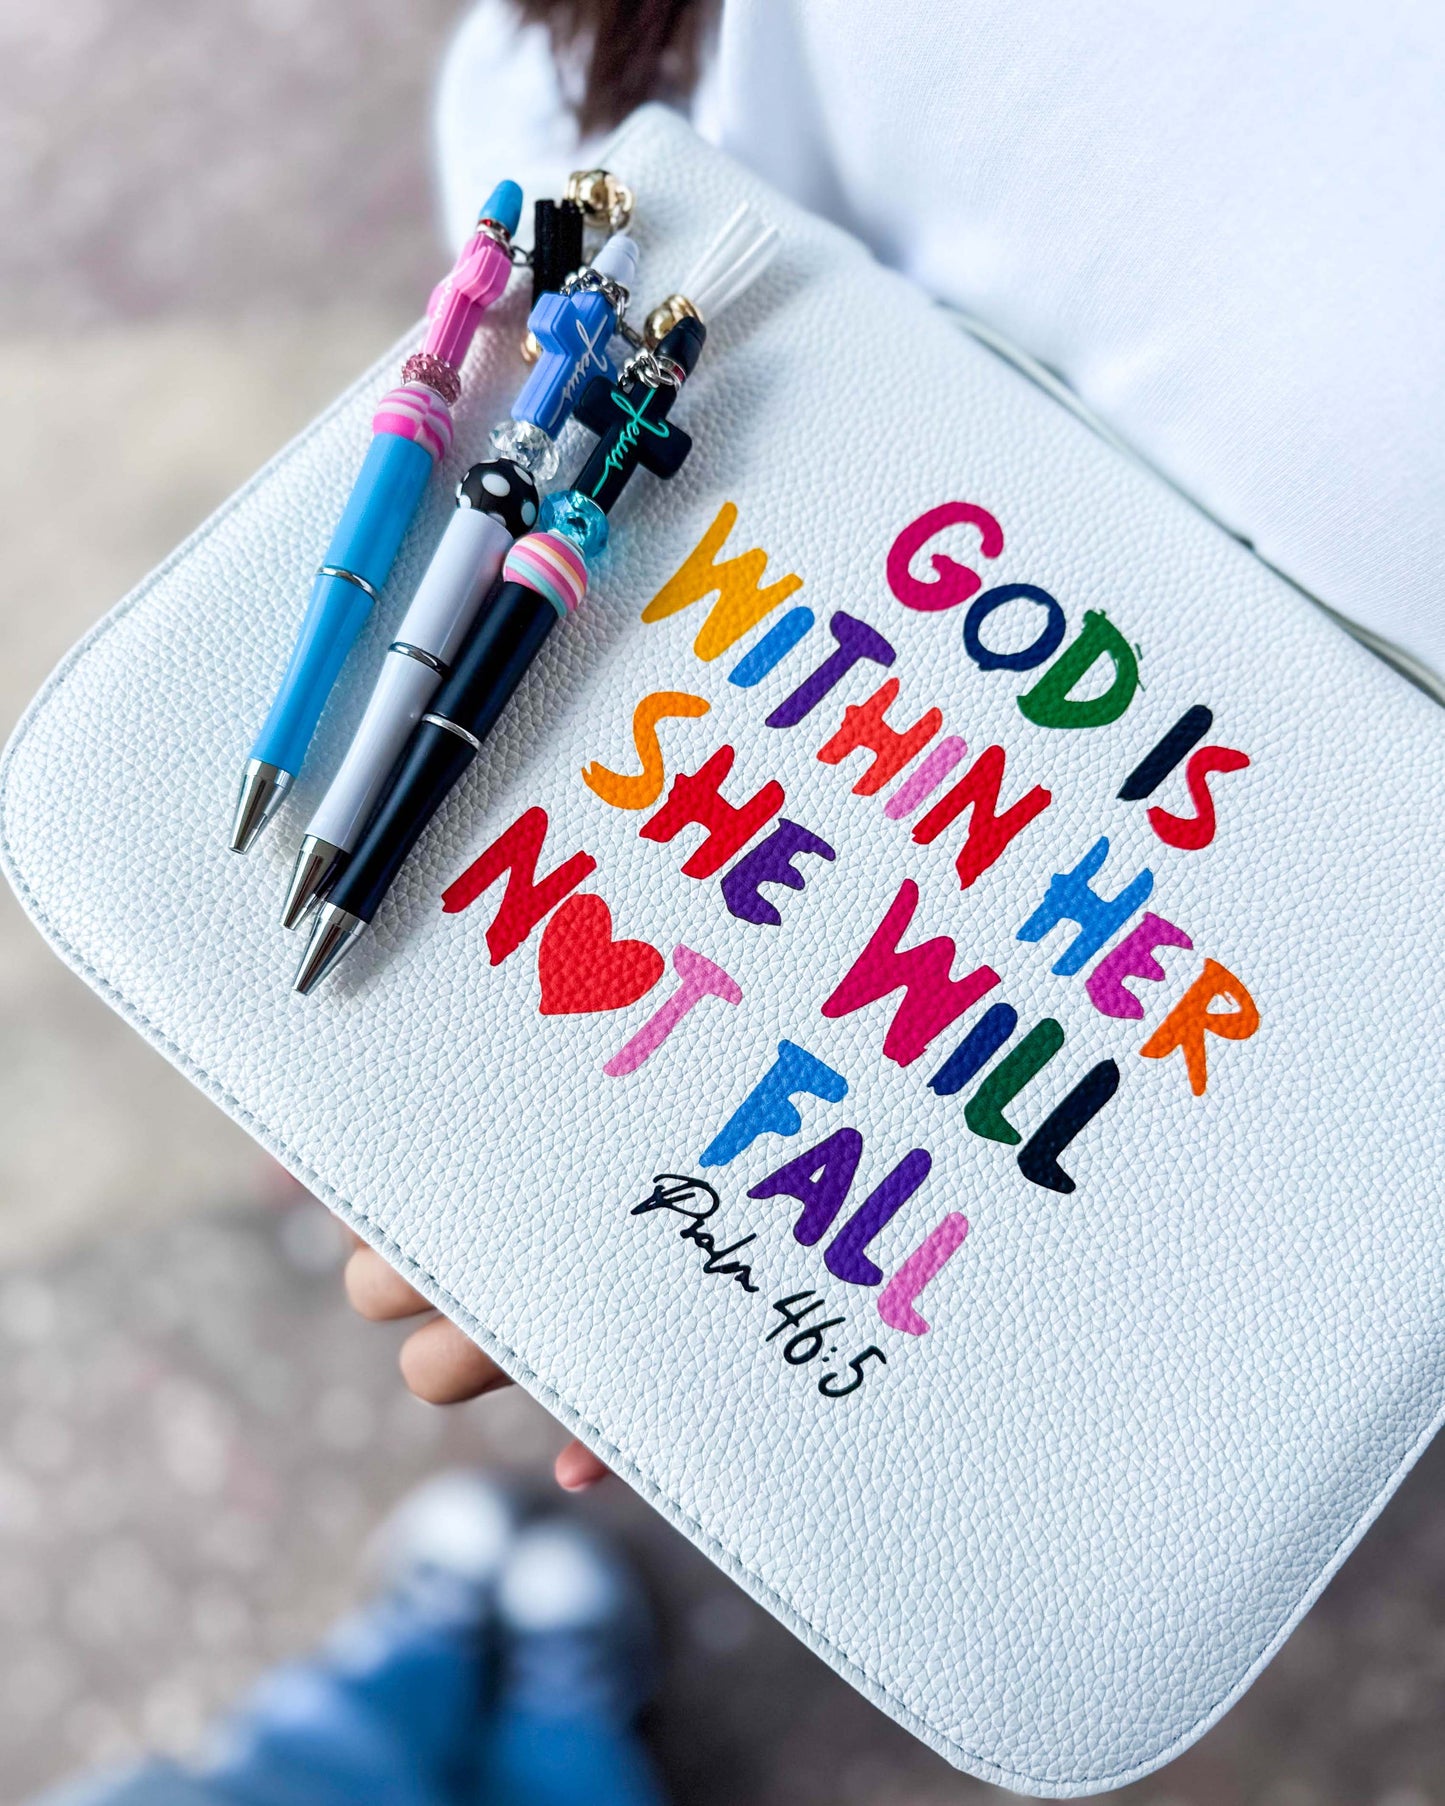 Jesus
Jesus
Jesus
GOD IS
WITHIN HER
SHE WILL
N♥T FALL
Psalm 46:5